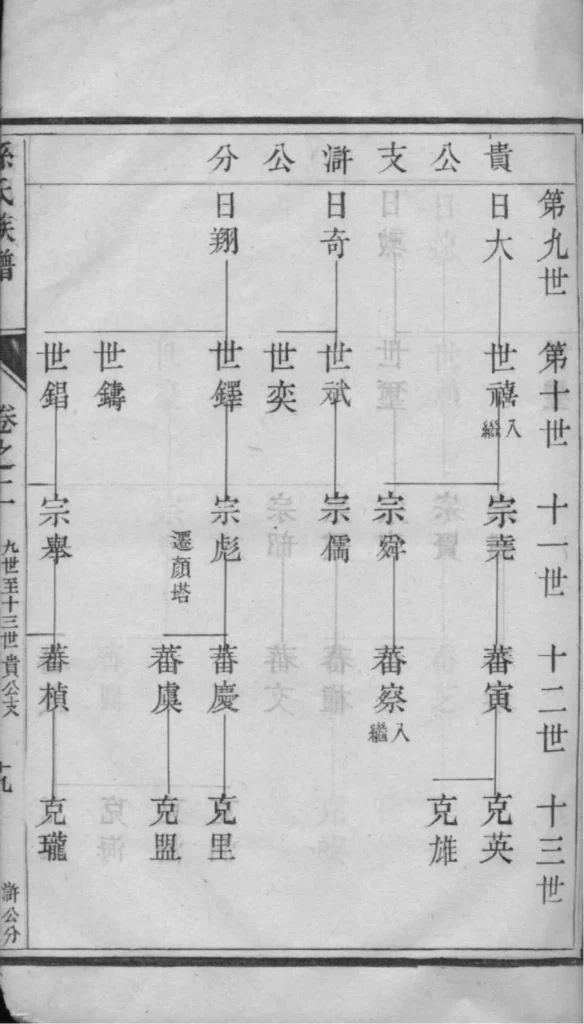 貴公支滸公分
第九世
日大
日奇
日翔
第十世
世禧
入繼
世斌
世奕
世鐸
世鑄
世錩
十一世
宗堯
宗舜
宗儒
宗彪
遷顏塔
宗舉
十二世
蕃寅
蕃察
入繼
蕃慶
蕃虞
蕃楨
十三世
克英
克雄
克里
克盟
克瓏
孫氏族譜
卷之二
九世至十三世貴公支
滸公分